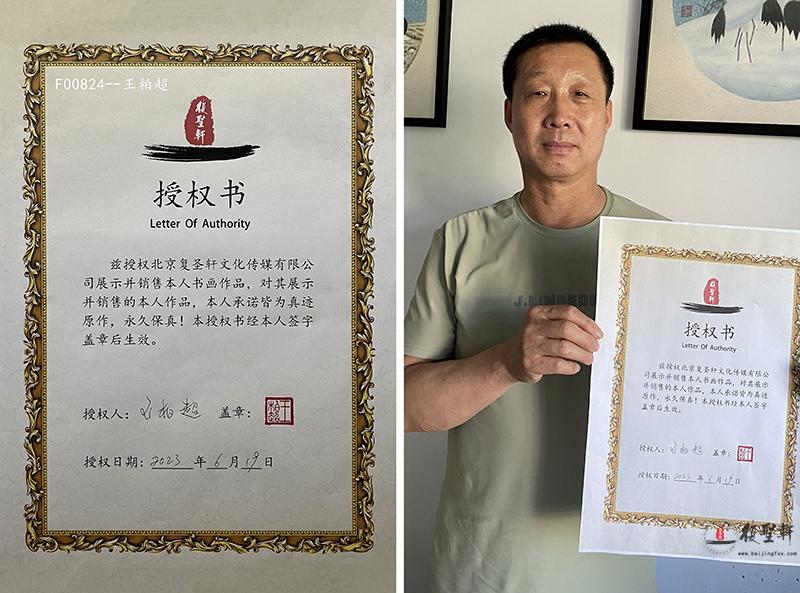 F00824--王柏超
復聖軒
授权书
Letter Of Authority
兹授权北京复圣轩文化传媒有限公
司展示并销售本人书画作品，对其展示
并销售的本人作品，本人承诺皆为真迹
原作，永久保真！本授权书经本人签字
盖章后生效。
授权人：王柏超 盖章：
授权日期：2023年6月19日
J.LINDEBE
復聖軒
授权书
Letter Of Authority
兹授权北京复圣轩文化传媒有限公
司展示并销售本人书画作品，对其展示
并销售的本人作品，本人承诺皆为真迹
原作，永久保真！本授权书经本人签字
盖章后生效。
授权人：王柏超 盖章：
授权日期：2023年6月19日
復聖軒
www.beijingfsx.com